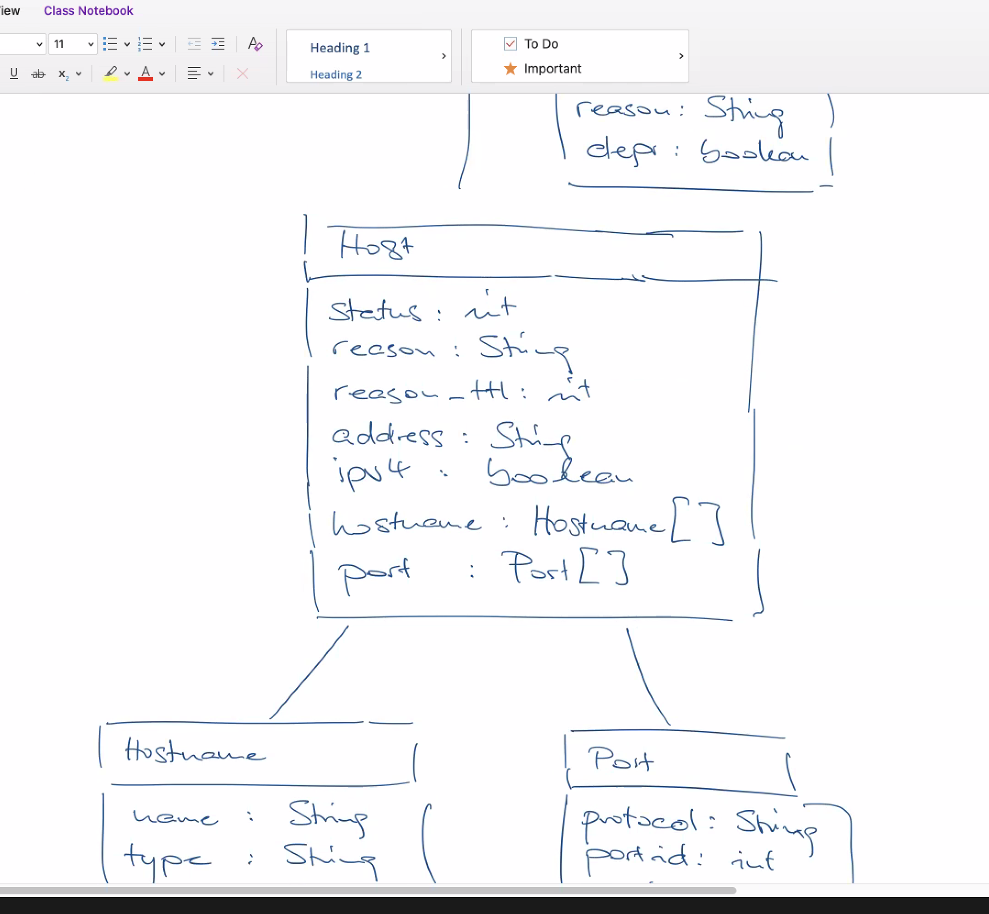 iew Class Notebook
11
Heading 1
To Do
U ab x₂ A
Heading 2
Important
reason : String
depr : boolean
Host
status : int
reason : String
reason_ttl : int
address : String
ipv4 : boolean
hostname : Hostname[]
port : Port[]
Hostname
Port
name : String
protocol : String
type : String
portid : int